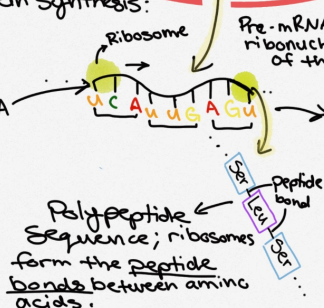 synthesis:
Pre-mRNA
ribonuc
of th
Ribosome
A
U C A U U G A G U
Ser
Leu
Ser
Peptide
bond
Polypeptide
Sequence; ribosomes
form the peptide
bonds between amino
acids.